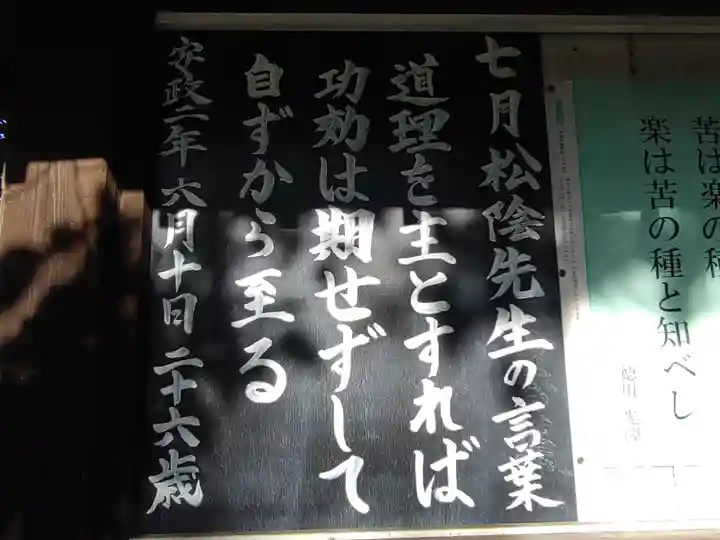 七月松陰先生の言葉
道理を主とすれば
功効は期せずして
自ずから至る
安政二年六月十日二十六歳
苦は楽の種
楽は苦の種と知べし
徳川光圀